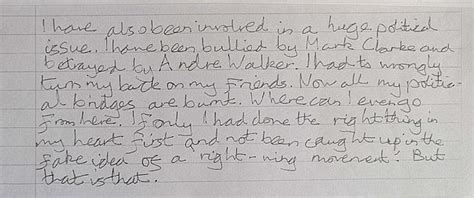 I have also been involved in a huge political
issue. I have been bullied by Mark Clarke and
betrayed by Andre Walker. I had to wrongly
turn my back on my friends. Now all my politic-
al bridges are burnt. Where can I even go
from here. If only I had done the right thing in
my heart first and not been caught up in the
fake idea of a right-wing movement. But
that is that.